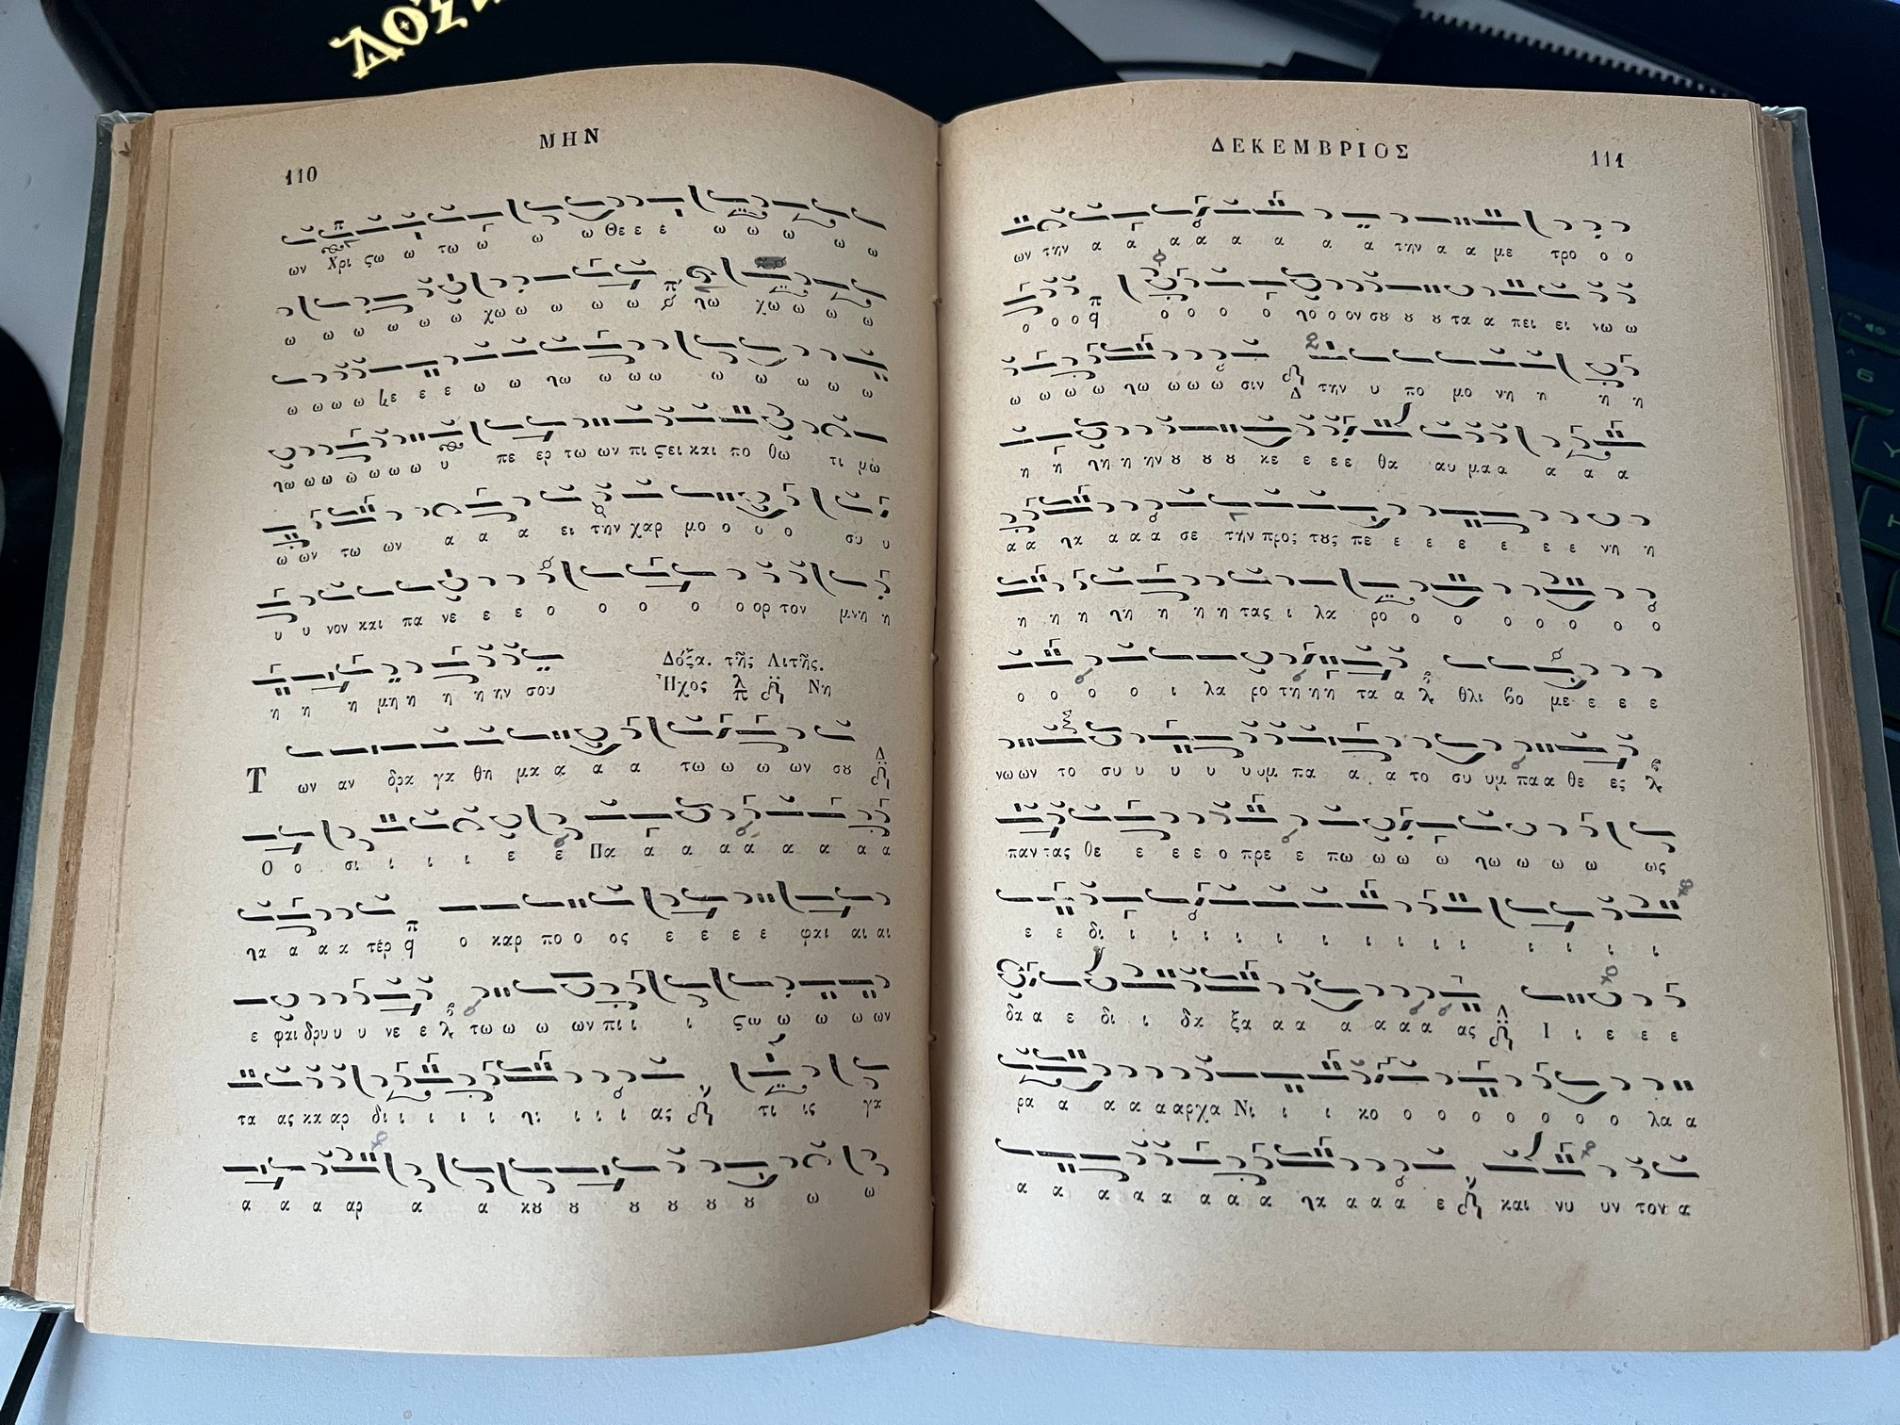 ΔΟΞ
ΜΗΝ
110
ων Χρι ςω ω τω ω ω ω Θε ε ε ω ω ω ω ω
ω ω ω ω ω χω ω ω ω ω π ηω χω ω ω ω
ω ω ω ω κε ε ε ω ω ηω ω ω ω ω ω ω ω ω
ηω ω ω ω ω ω ω υ πε ερ τω ων πι ςει και πο θω τι μω
ω ων τω ων α α α ει την χαρ μο ο ο ο συ υ
υ υ νον και πα νε ε ε ο ο ο ο ο ορ τον μνη η
η η η μη η η η ην σου
Δόξα. τῆς Λιτῆς.
Ἦχος λ π Νη
Τ ων αν δρα γα θη μα α α α τω ω ω ων σȣ Δ
Ο ο σι ι ι ι ε ε Πα α α α α α α α
ηα α α α τέρ π q ο καρ πο ο ος ε ε ε ε φαι αι αι
ε φαι δρυ υ υ νε ε τω ω ω ων πι ι ι ςω ω ω ω ων
τα ας κα αρ δι ι ι ι ι ηι ι ι ι ας τι ις γα
α α α αρ α α κȣ ȣ ȣ ȣ ȣ ȣ ω ω
ΔΕΚΕΜΒΡΙΟΣ
111
ων την α α α α α α α α την α α με τρο ο ο
ο ο ο π q ο ο ο ο ηο ο ον σȣ ȣ ȣ τα α πει ει νω ω
ω ω ω ω ηω ω ω ω σιν Δ την υ πο μο νη η η η
η η ηη η ην ȣ ȣ ȣ κε ε ε ε θα αυ μα α α α α
α α ηα α α α σε την προς τȣς πε ε ε ε ε ε ε νη η
η η η ηη η η η τας ι λα ρο ο ο ο ο ο ο ο
ο ο ο ο ι λα ρο τη ηη τα α θλι βο με ε ε ε
νω ων το συ υ υ υ υ υμ πα α α το συ υμ πα α θε ες
παν τας θε ε ε ε ο πρε ε πω ω ω ω ηω ω ω ω ως
ε ε δι ι ι ι ι ι ι ι ι ι ι ι ι ι
δα α ε δι ι δα ξα α α α α α α ας Ι ι ε ε ε
ρα α α α α αρχα Νι ι ι κο ο ο ο ο ο ο ο λα α
α α α α α α α α ηα α α α ε και νυ υν τον α